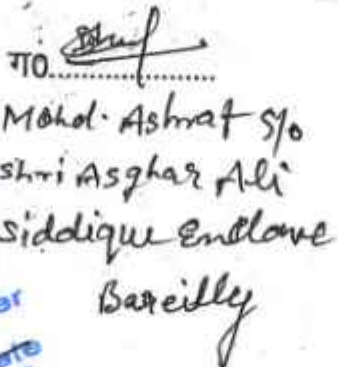 गo..................
Mohd. Ashraf S/o
Shri Asghar Ali
Siddique Enclave
Bareilly